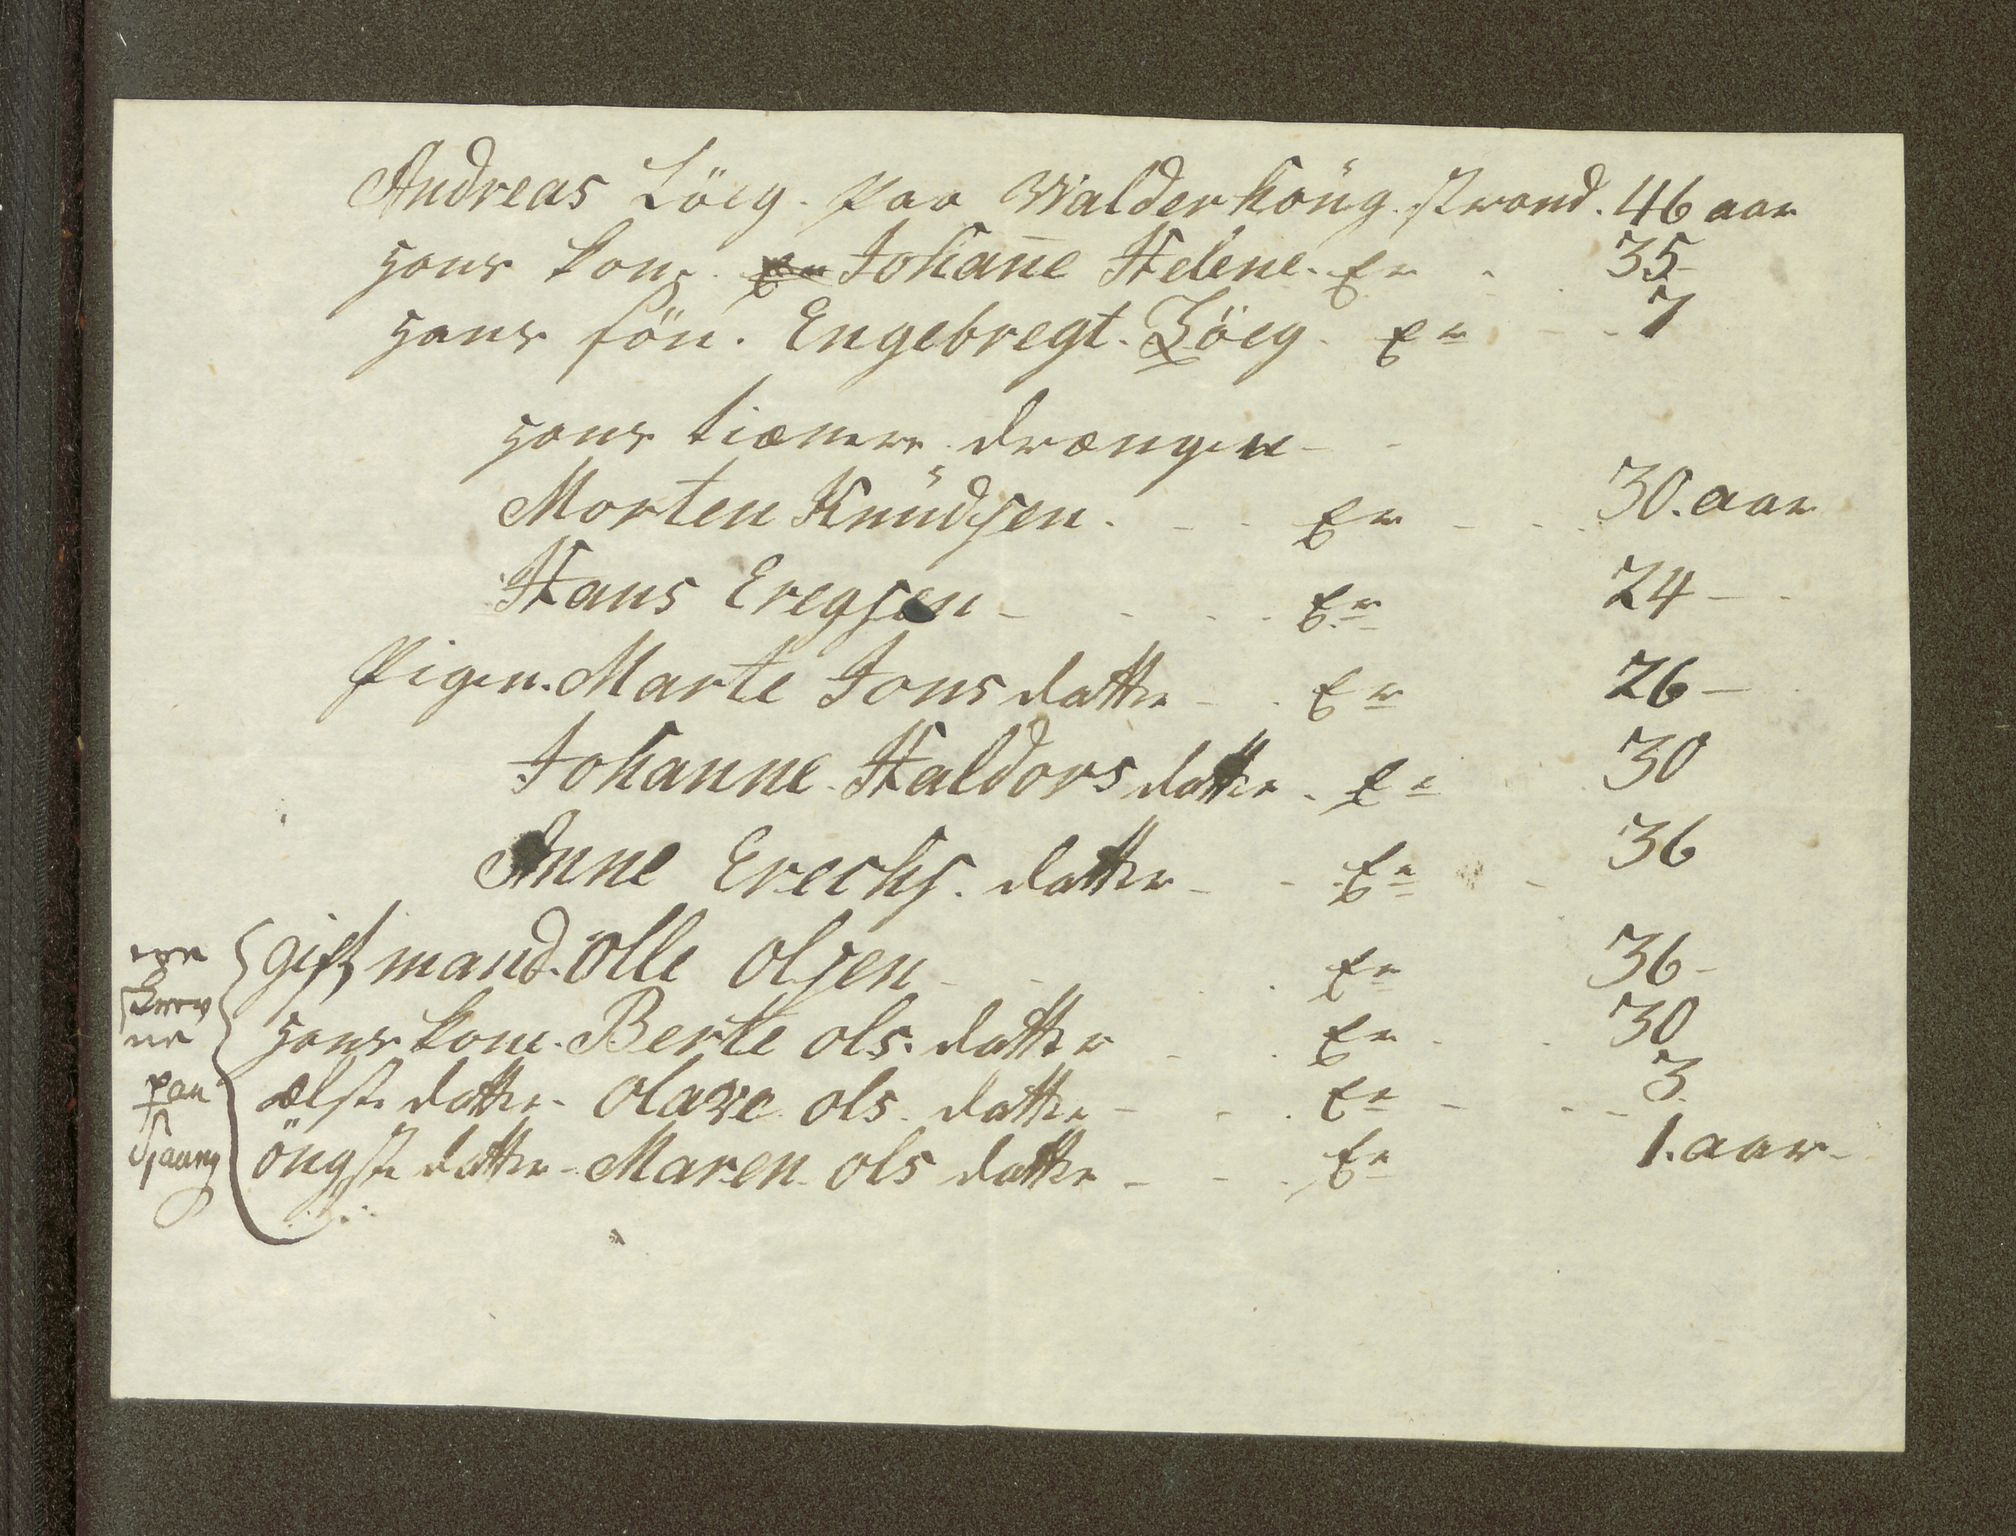 Andreas Löeg. paa Walderhöüg. strand. 46 aar
hans kone. Johan̄e Helene. Er 35
hans sön. Engebregt. Löeg. Er 7
hans tienere drængen
Morten Knüdsen. Er 30. aar
Hans Eregsen Er 24
Pigen. Marte Jons datter Er 26
Johanne. Haldors datter. Er 30
Anne Erechs. datter Er 36
gift mand. Olle olsen Er 36
hans kone. Berte ols. datter Er 30
ælste datter olave ols. datter Er 3
öngste datter Maren ols datter Er 1. aar
paa